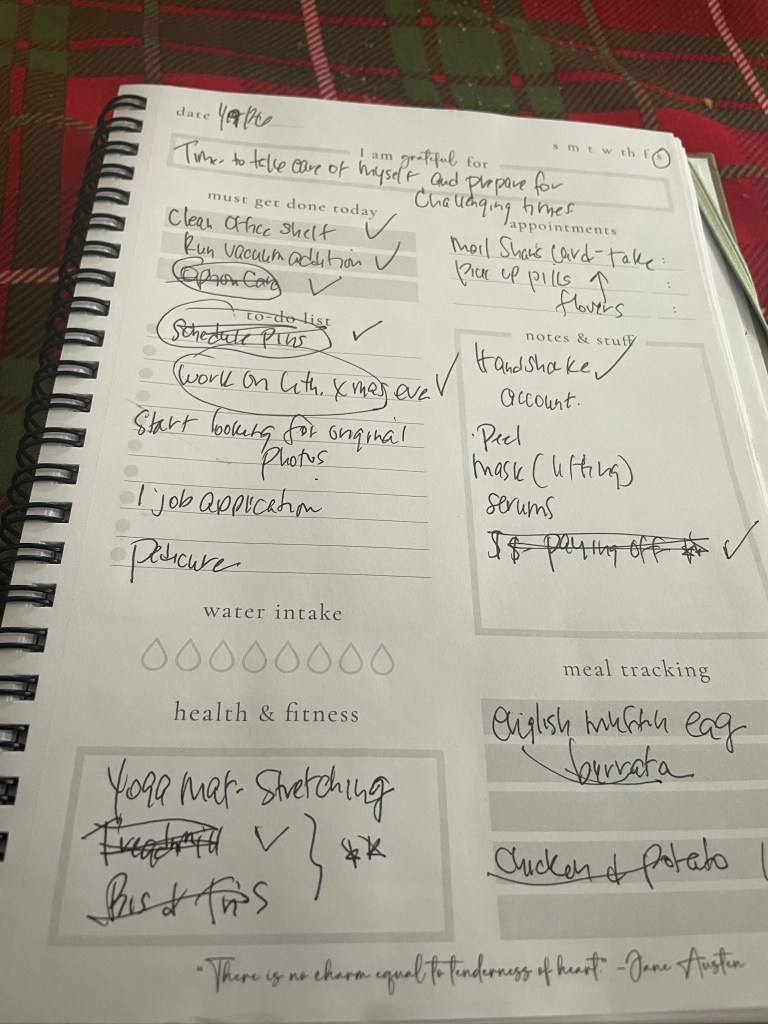 date
s m t w th f s
I am grateful for
Time to take care of myself and prepare for
Challenging times
must get done today
Clean Office Shelf ✓
Run vacuum addition ✓
✓
to-do list
Schedule Pins ✓
Work on Xmas eve ✓
Start looking for original
photos
1 job application
Pedicure
appointments
Mail card - take :
Pick up pills ↑ :
flowers :
notes & stuff
Handshake ✓
account.
· Peel
mask (lifting)
serums
$ $ - paying off ✓
water intake
health & fitness
Yoga mat - Stretching
Treadmill ✓ } **
Bis & Tris
meal tracking
English muffin egg
burrata
Chicken & potato
"There is no charm equal to tenderness of heart." - Jane Austen